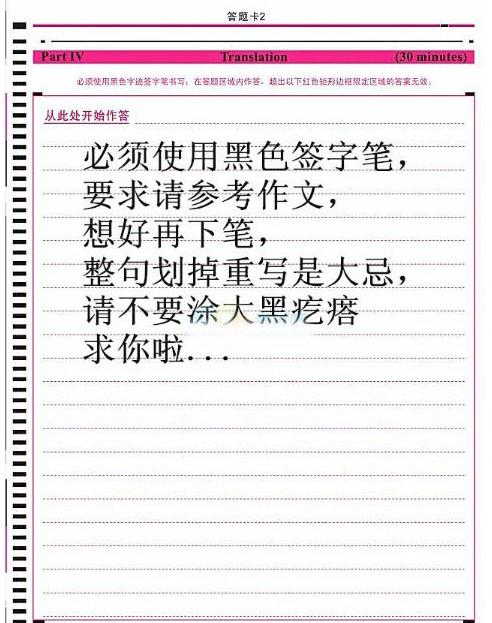 答题卡2
Part IV Translation (30 minutes)
必须使用黑色字迹签字笔书写，在答题区域内作答，超出以下红色矩形边框限定区域的答案无效。
从此处开始作答
必须使用黑色签字笔，
要求请参考作文，
想好再下笔，
整句划掉重写是大忌，
请不要涂大黑疙瘩
求你啦...